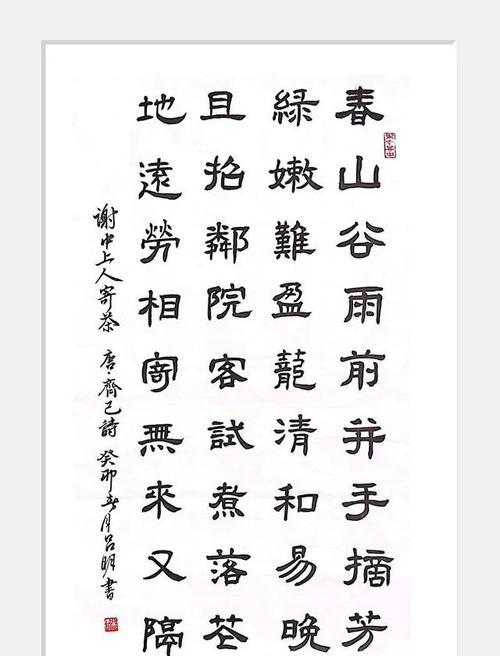 春山谷雨前并手摘芳
綠嫩難盈蘢清和易晚
且招鄰院客試煮落花
地遠勞相寄無來又隔
謝中上人寄茶 唐·齊己詩 癸卯春月呂明書